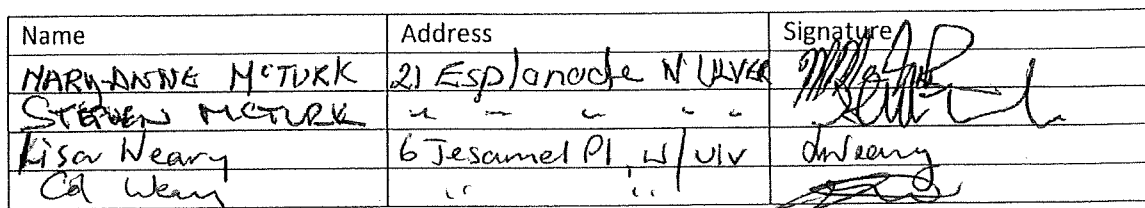 Name Address Signature
MARY-ANNE MCTURK 21 Esplanade W'ULVER
STEPHEN MCTURK " " " " "
Lisa Neary 6 Jesamel Pl, W/ULV LNeary
Neary " "